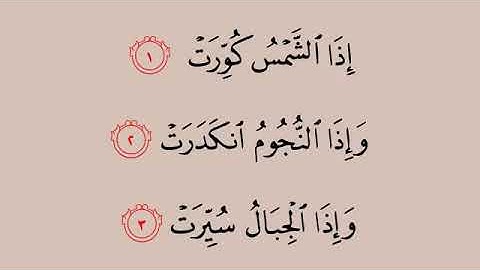 إِذَا ٱلشَّمْسُ كُوِّرَتْ ١
وَإِذَا ٱلنُّجُومُ ٱنكَدَرَتْ ٢
وَإِذَا ٱلْجِبَالُ سُيِّرَتْ ٣